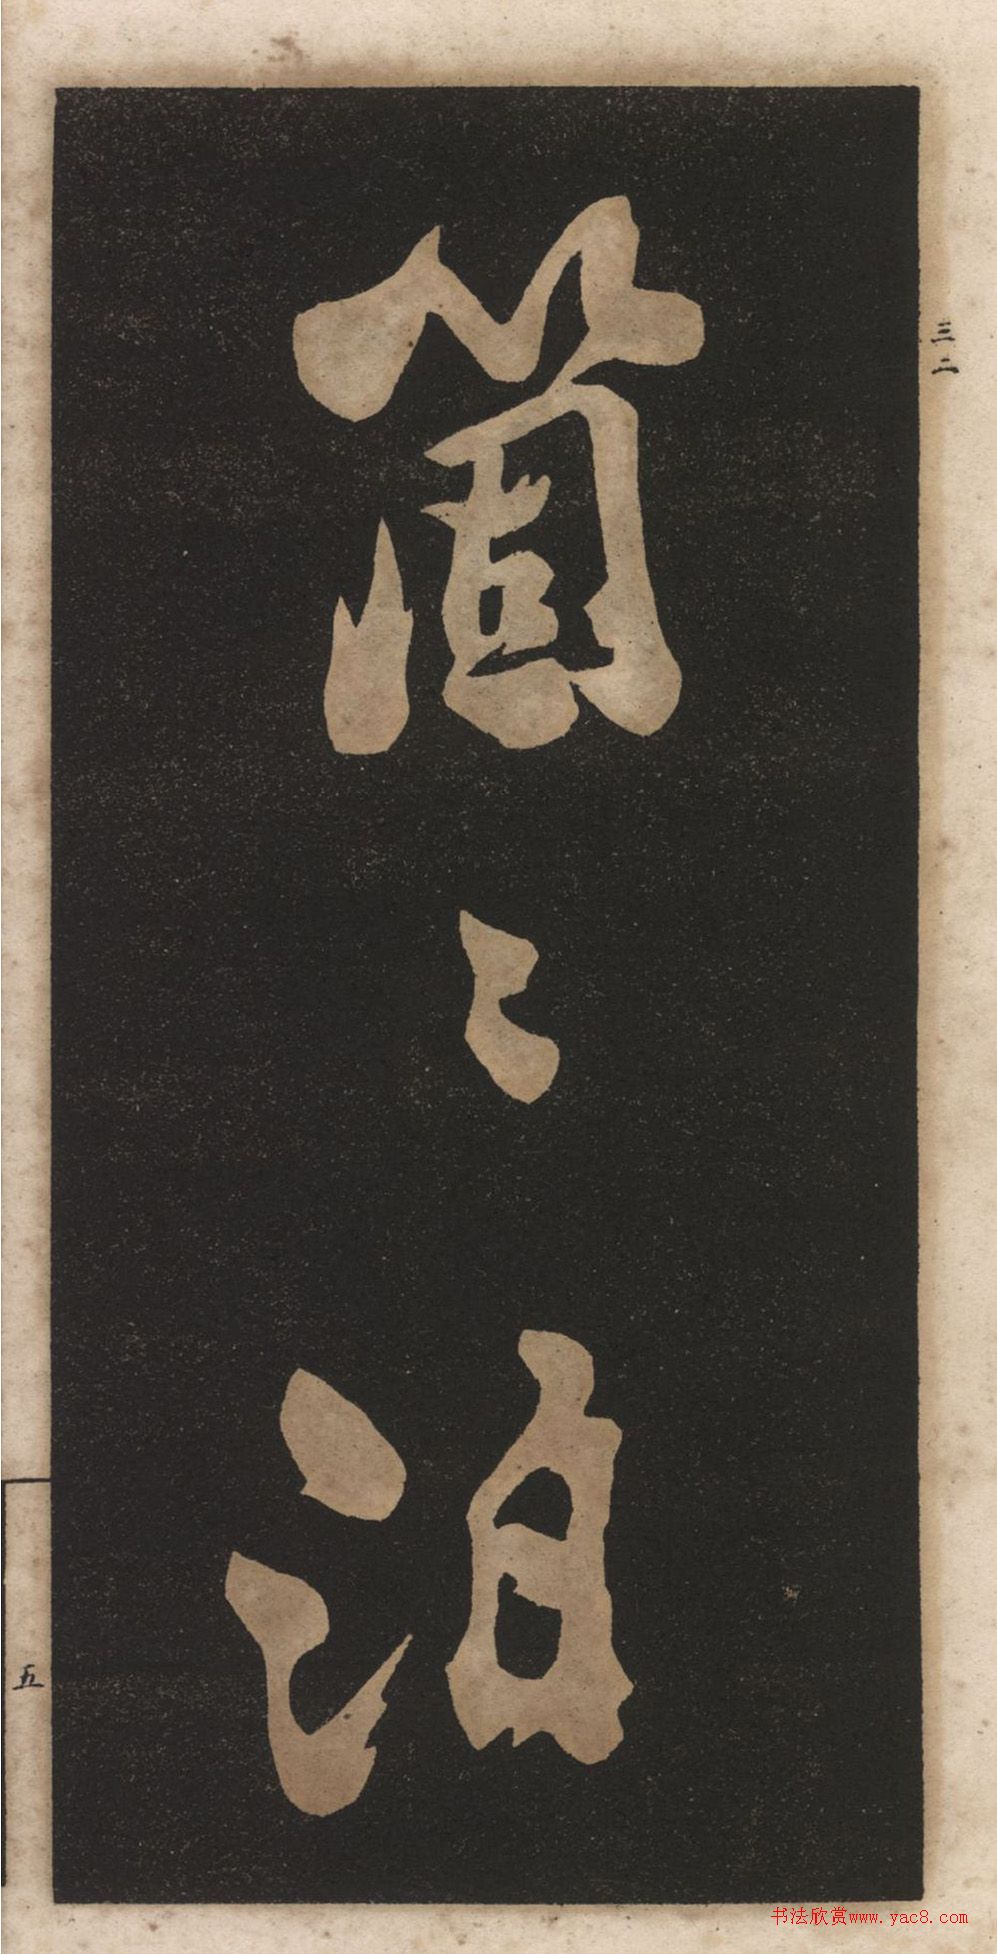 箇〻泊
三二
五
书法欣赏www.yac8.com